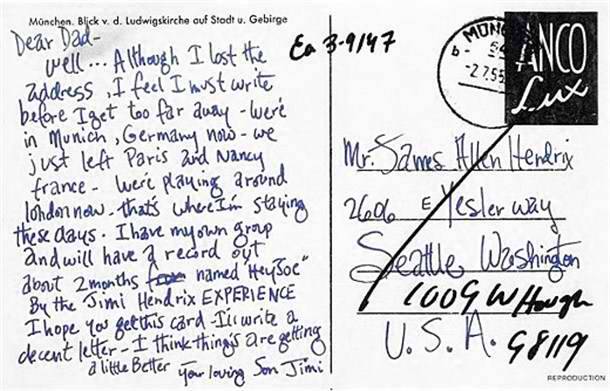 München. Blick v. d. Ludwigskirche auf Stadt u. Gebirge
Dear Dad-
well... Although I lost the
address, I feel I must write
before I get too far away - we're
in Munich, Germany now - we
just left Paris and Nancy
france - we're playing around
london now - that's where I'm staying
these days. I have my own group
and will have a record out
about 2 months named Hey Joe"
By the Jimi Hendrix EXPERIENCE
I hope you get this card - I'll write a
decent letter - I think things are getting
a little Better
Your loving Son Jimi
Ea 3-9147
MÜN
ANCO
Lux
Mr. James Allen Hendrix
2606 E Yesler way
Seattle Washington
1009 W Hough
U.S.A. 98119
REPRODUCTION